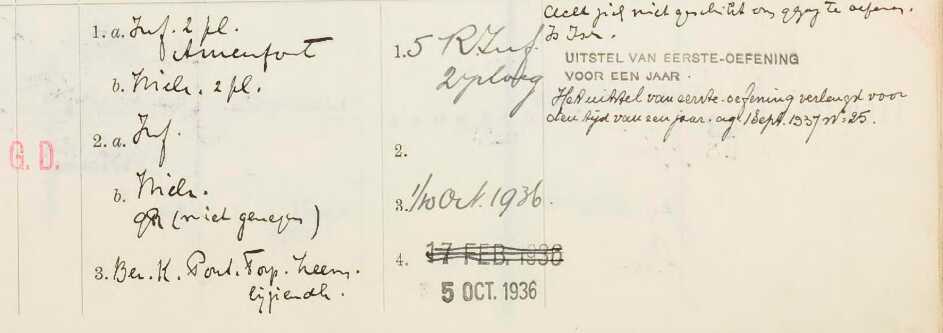 G. D.
1. a. Inf. 2 pl.
Amersfoort
b. Wielr. 2 pl.
2. a. Inf.
b. Wielr.
(niet genegen)
3. Ber. K. Pont. Torp.
1. 5 R. Inf.
2e ploeg
2.
3. 1/10 Oct. 1936
4. 17 FEB. 1936
5 OCT. 1936
Acht zich niet geschikt om gezag te oefenen.
Is
UITSTEL VAN EERSTE-OEFENING
VOOR EEN JAAR.
Het uitstel van eerste-oefening verlengd voor
den tijd van een jaar. 1 Sept. 1937 No 25.